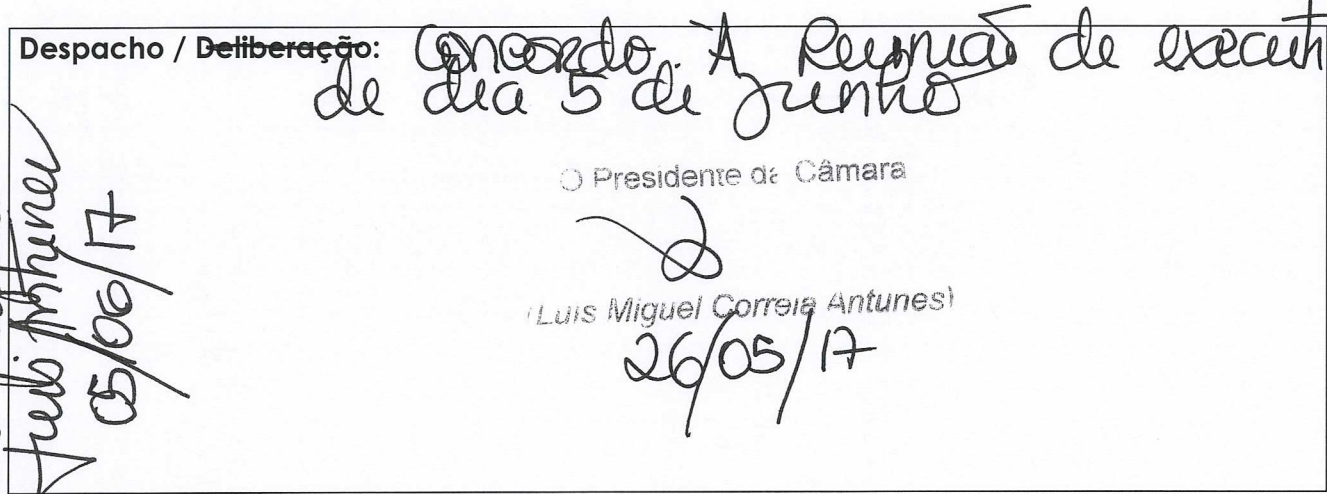 Despacho / Deliberação: Concordo. À Reunião de execut
de dia 5 de junho
O Presidente da Câmara
(Luis Miguel Correia Antunes)
26/05/17
Antunes
05/06/17